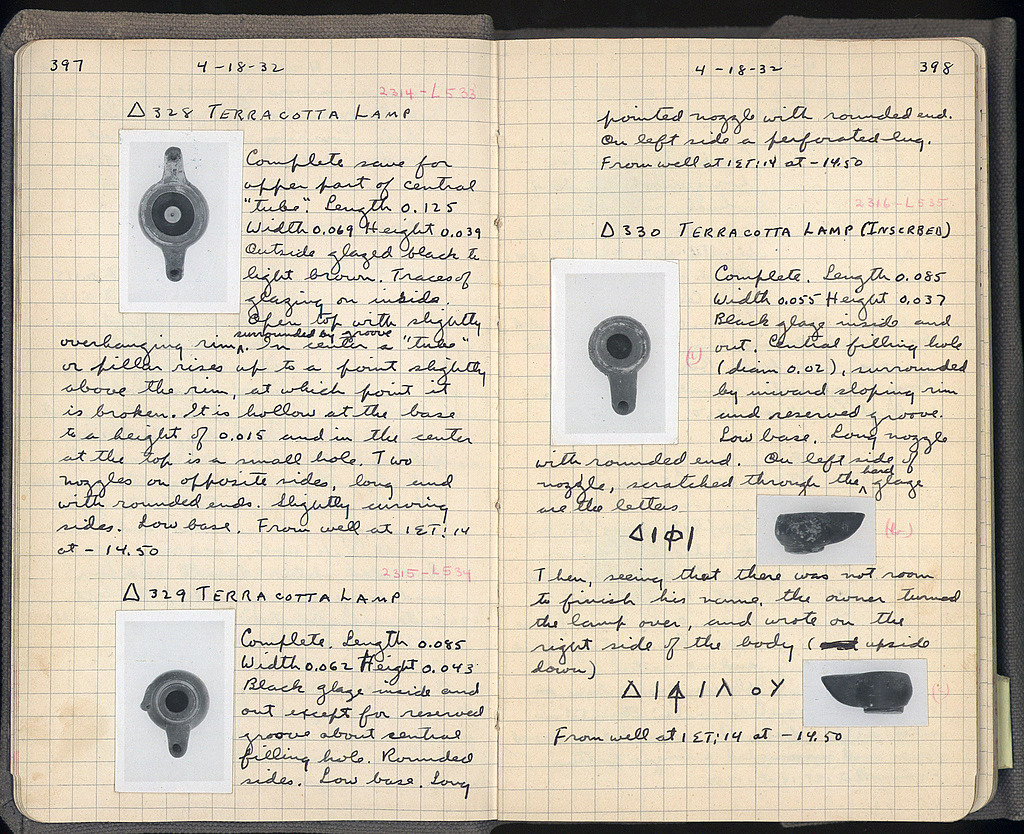 397
4-18-32
2314-L533
Δ 328 TERRACOTTA LAMP
Complete save for
upper part of central
"tube". Length 0.125
Width 0.069 Height 0.039
Outside glazed black to
light brown. Traces of
glazing on inside.
Open top with slightly
surrounded by groove
overhanging rim ‸. In center a "tube"
or pillar rises up to a point slightly
above the rim, at which point it
is broken. It is hollow at the base
to a height of 0.015 and in the center
at the top is a small hole. Two
nozzles on opposite sides, long and
with rounded ends. Slightly curving
sides. Low base. From well at 1ET:14
at - 14.50
2315-L534
Δ 329 TERRACOTTA LAMP
Complete. Length 0.085
Width 0.062 Height 0.043
Black glaze inside and
out except for reserved
groove about central
filling hole. Rounded
sides. Low base. Long
4-18-32
398
pointed nozzle with rounded end.
On left side a perforated lug.
From well at 1ET:14 at -14.50
2316-L535
Δ 330 TERRACOTTA LAMP (INSCRBED)
Complete. Length 0.085
Width 0.055 Height 0.037
Black glaze inside and
out. Central filling hole
(diam 0.02), surrounded
by inward sloping rim
and reserved groove.
Low base. Long nozzle
with rounded end. On left side of
hard
nozzle, scratched through the ‸ glaze
are the letters
ΔΙΦΙ
Then, seeing that there was not room
to finish his name, the owner turned
the lamp over, and wrote on the
right side of the body ( upside
down)
ΔΙΦΙΛ ΟΥ
From well at 1ET:14 at -14.50